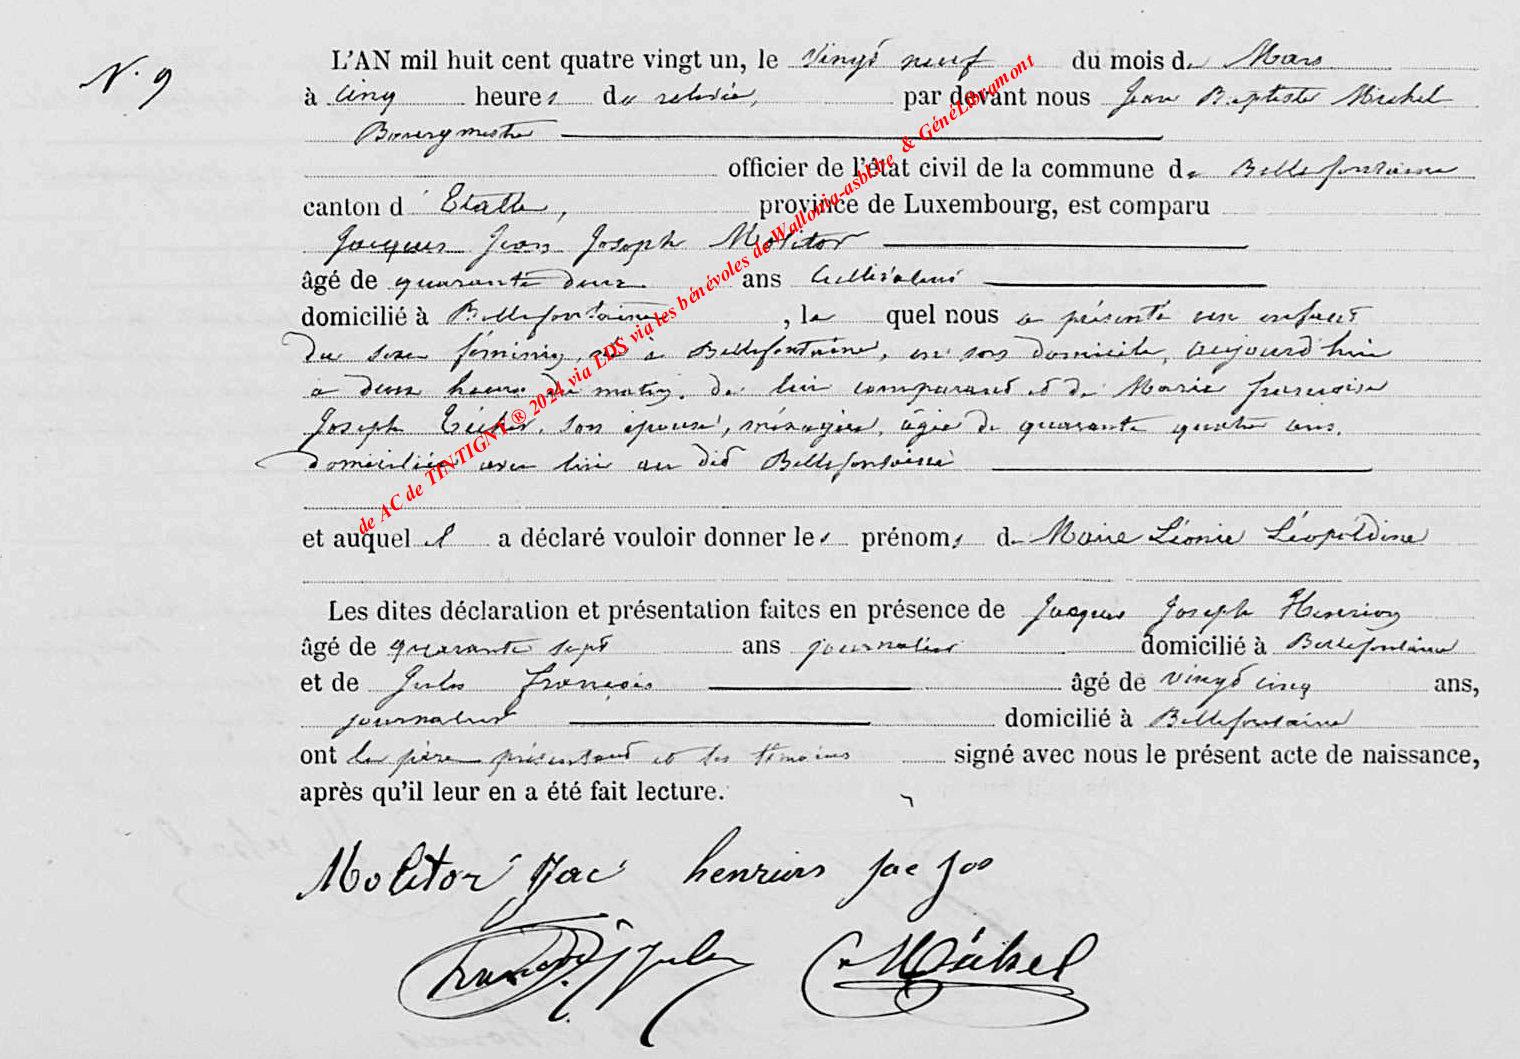 N° 9
L'AN mil huit cent quatre vingt un, le vingt neuf du mois de Mars
à cinq heures de relevée, par devant nous Jean Baptiste Michel
Bourgmestre
officier de l'état civil de la commune de Bellefontaine
canton d'Etalle, province de Luxembourg, est comparu
Jacques Jean Joseph Molitor
âgé de quarante deux ans cultivateur
domicilié à Bellefontaine, le quel nous a présenté un enfant
du sexe féminin, né à Bellefontaine, en son domicile, aujourd'hui
a deux heures du matin, de lui comparant et de Marie françoise
Joseph son épouse, ménagère, âgée de quarante quatre ans,
domiciliée avec lui au dit Bellefontaine
et auquel il a déclaré vouloir donner les prénoms de Marie Léonie Léopoldine
Les dites déclaration et présentation faites en présence de Jacques Joseph Henrion
âgé de quarante sept ans journalier domicilié à Bellefontaine
et de Jules françois âgé de vingt cinq ans,
journalier domicilié à Bellefontaine
ont le père présentant et les témoins signé avec nous le présent acte de naissance,
après qu'il leur en a été fait lecture.
Molitor Jac henrion Jac Jos
françois Jules Michel
de AC de TINTIGNY ® 2024 via LDS via les bénévoles de Wallonia-asbl.be & GénéLibramont